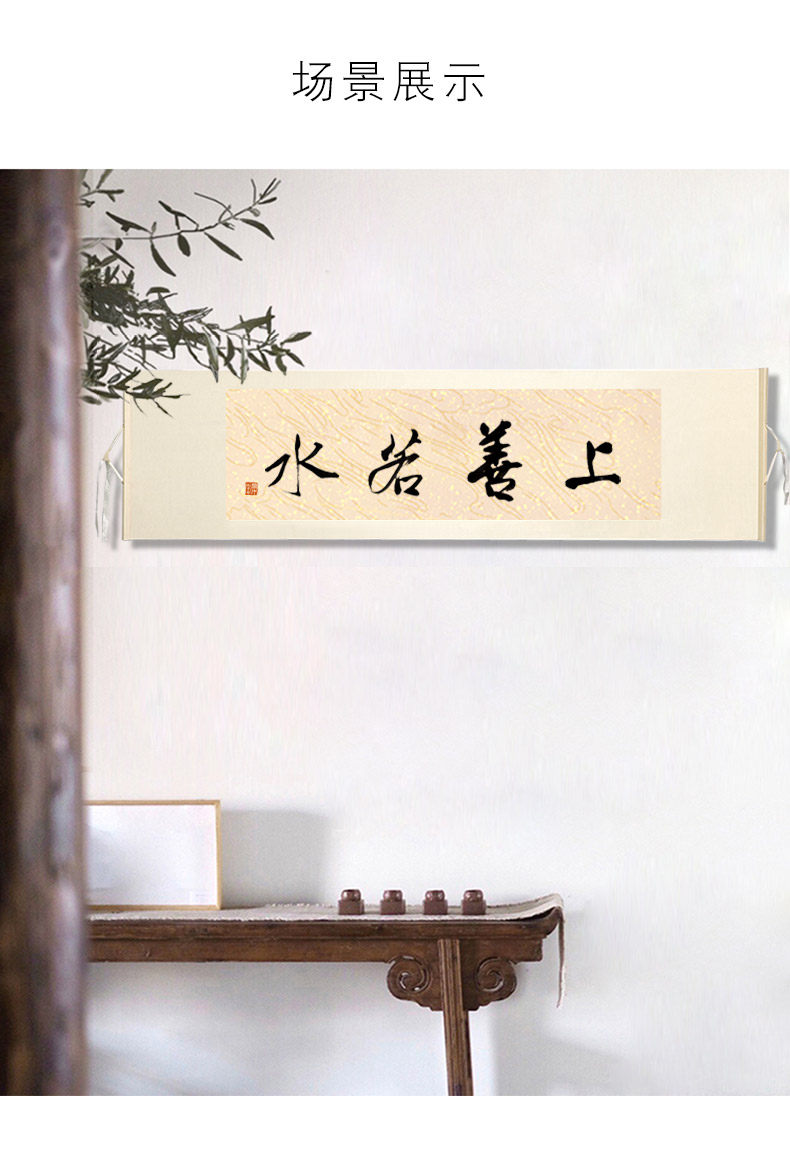 场景展示
上善若水